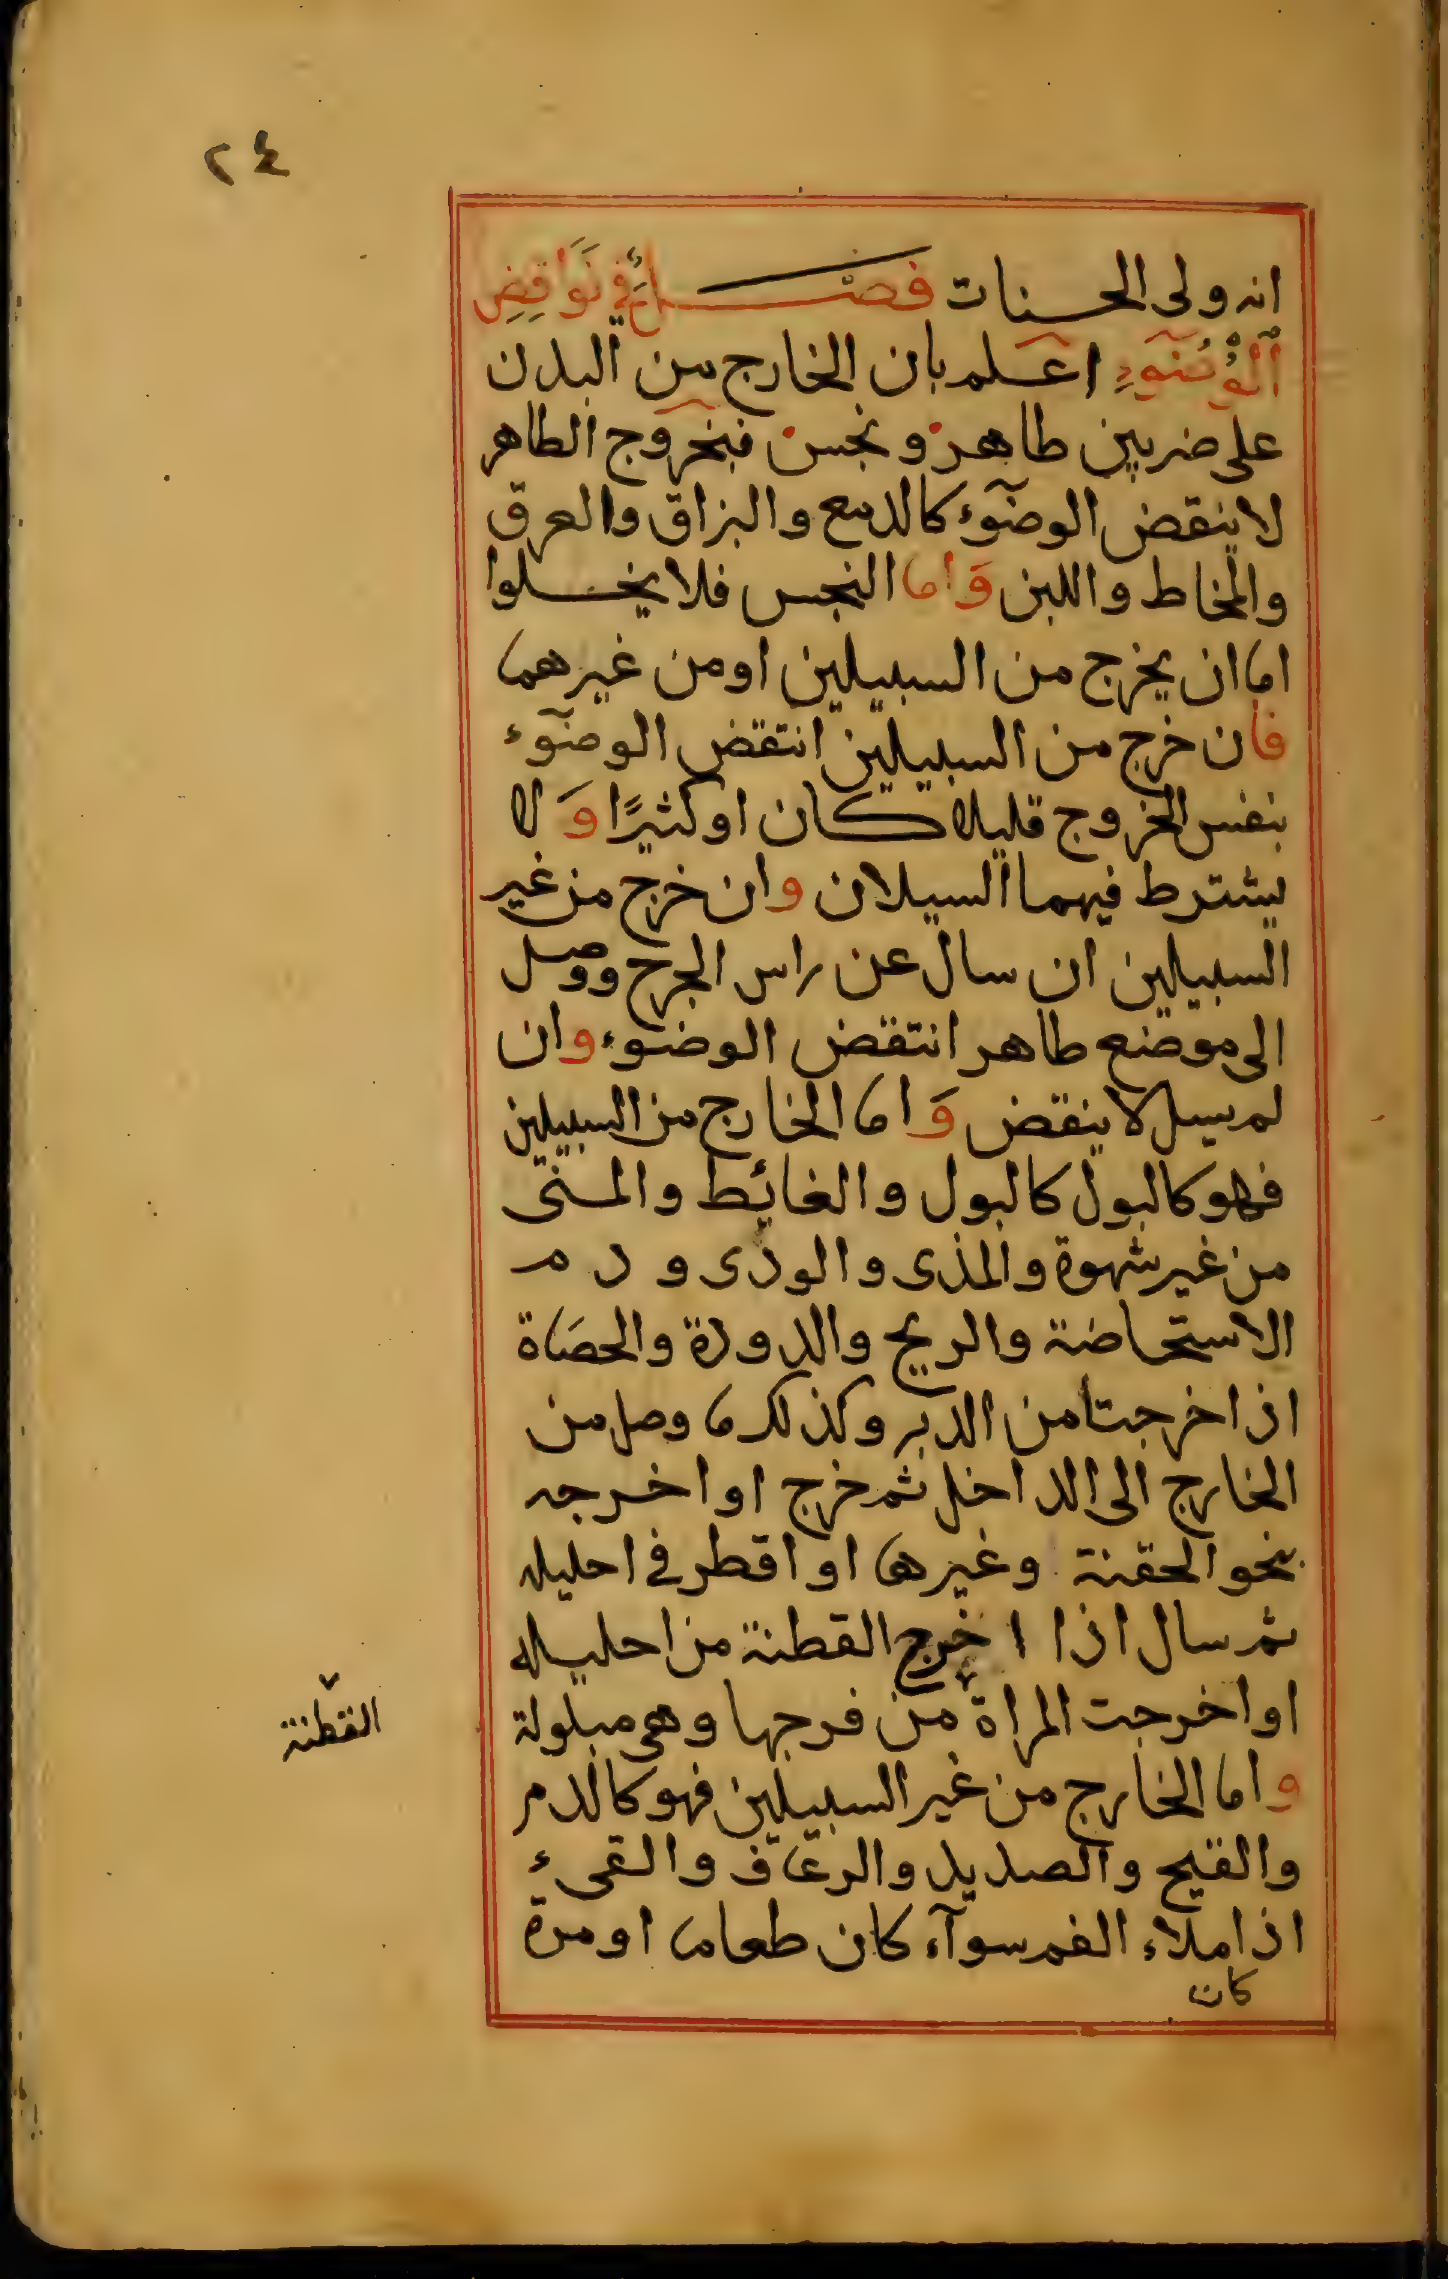 ٢٤
انه ولى الحسنات فصل في نَوَاقِضِ
اَلْوُضُوءِ اعلم بان الخارج من البدن
على ضربين طاهر ونجس فبخروج الطاهر
لا ينقض الوضوء كالدمع والبزاق والعرق
والمخاط واللبن وَاما النجس فلا يخلوا
اما ان يخرج من السبيلين او من غيرهما
فان خرج من السبيلين انتقض الوضوء
بنفس الخروج قليلا كان او كثيرًا وَلا
يشترط فيهما السيلان وان خرج من غير
السبيلين ان سال عن راس الجرح ووصل
الى موضع طاهر انتقض الوضوء وان
لم يسل لا ينقض وَاما الخارج من السبيلين
فهو كالبول كالبول والغائط والمنى
من غير شهوة والمذى والودى و دم
الاستحاضة والريح والدودة والحصَاة
اذا خرجتا من الدبر وكذلك ما وصل من
الخارج الى الداخل ثم خرج او اخرجه
بنحو الحقنة وغيرها او اقطر فى احليله
ثم سال اذا اخرج القطنة من احليله
او اخرجت المراة من فرجها وهى مبلولة
القطنة
واما الخارج من غير السبيلين فهو كالدم
والقيح والصديد والرعاف والقىء
اذا ملاء الفم سوآء كان طعاما او مرة
كان